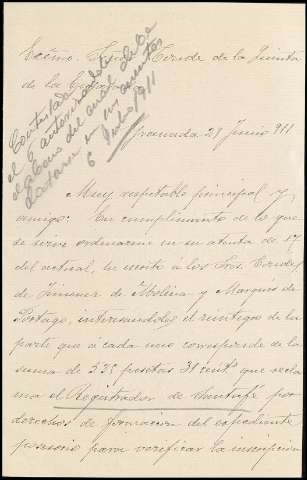 Excmo. Señor Conde de la Quinta
de la
Contestada
el 6 autorizandole
el abono del cual debe
datarse en sus cuentas
6 Julio/911
Granada 29 Junio 911
Muy respetable principal y
amigo: En cumplimiento de lo que
se sirve ordenarme en su atenta de 17
del actual, he escrito á los Sres. Condes
de Jimenez de Molina y Marques de
Portago, interesandoles el reintegro de la
parte que á cada uno corresponde de la
suma de 535 pesetas 31 cents que recla
ma el Registrador de Santafé por
derechos de formacion del expediente
posesorio para verificar la inscripcion